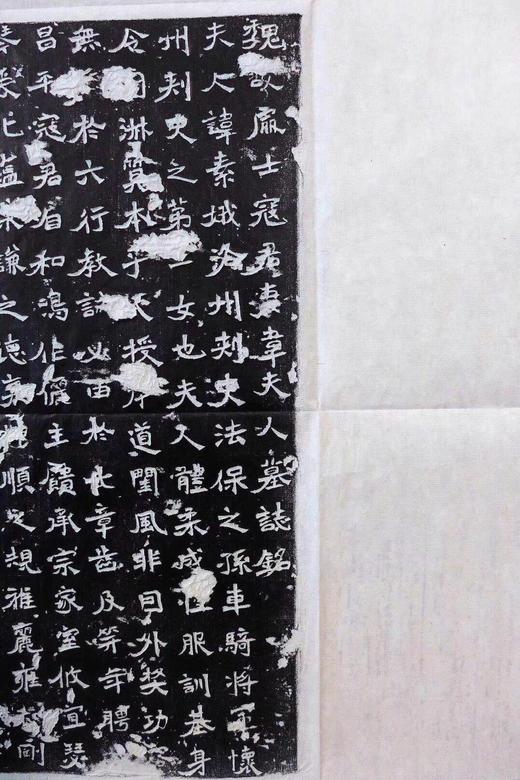 魏故處士寇君妻韋夫人墓誌銘
夫人諱素娥洛州刺史法保之孫車騎將軍懷
州刺史之第二女也夫人體柔成性服訓基身
令問淋質本乎天授道閨風非因外獎功容
無於六行教訓必由於七章齒及笄年聘
昌平寇君眉和鳴作儷主饋承宗家室攸宜瑟
蘊柔謙之德順之規雅麗雍剛